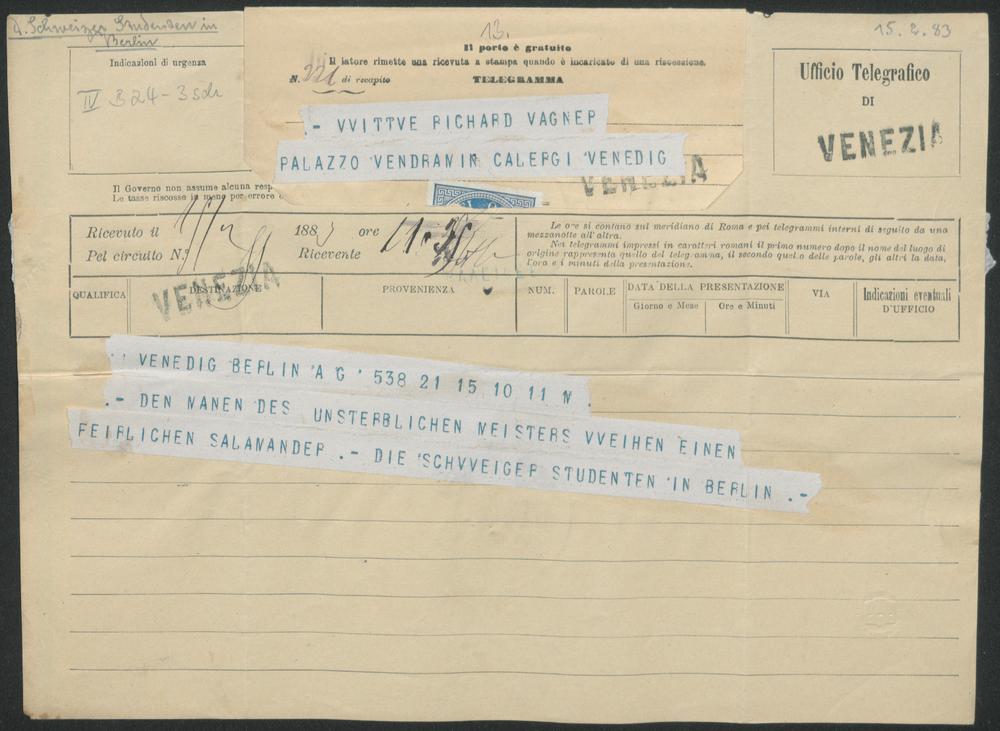 d. Schweizer Studenten in
Berlin
Indicazioni di urgenza
IV B 24-3
13.
Il porto è gratuito
Il latore rimette una ricevuta a stampa quando è incaricato di una riscossione.
N. 221 di recapito TELEGRAMMA
.- VVITTVE RICHARD VAGNEP
PALAZZO VENDRAMIN CALERGI VENEDIG
VENEZIA
15.2.83
Ufficio Telegrafico
DI
VENEZIA
Il Governo non assume alcuna resp
Le tasse riscosse in meno per errore
Ricevuto il 1883 ore
Pel circuito N. Ricevente
Le ore si contano sul meridiano di Roma e pei telegrammi interni di seguito da una
mezzanotte all'altra.
Nei telegrammi impressi in caratteri romani il primo numero dopo il nome del luogo di
origine rappresenta quello del telegramma, il secondo quello delle parole, gli altri la data,
l'ora e i minuti della presentazione.
VENEZIA
QUALIFICA DESTINAZIONE PROVENIENZA NUM. PAROLE DATA DELLA PRESENTAZIONE VIA Indicazioni eventuali
Giorno e Mese Ore e Minuti D'UFFICIO
VENEDIG BERLIN A G 538 21 15 10 11 M .
.- DEN MANEN DES UNSTERBLICHEN MEISTERS VVEIHEN EINEN
FEIRLICHEN SALAMANDER .- DIE SCHVVEIGER STUDENTEN IN BERLIN .-